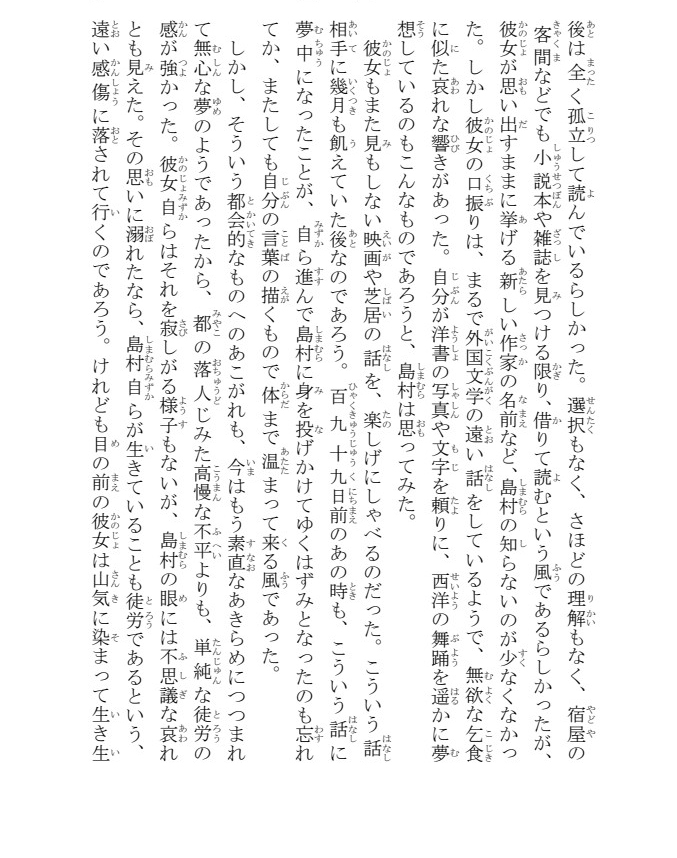 後は全く孤立して読んでいるらしかった。選択もなく、さほどの理解もなく、宿屋の
客間などでも小説本や雑誌を見つける限り、借りて読むという風であるらしかったが、
彼女が思い出すままに挙げる新しい作家の名前など、島村の知らないのが少なくなかっ
た。しかし彼女の口振りは、まるで外国文学の遠い話をしているようで、無欲な乞食
に似た哀れな響きがあった。自分が洋書の写真や文字を頼りに、西洋の舞踊を遥かに夢
想しているのもこんなものであろうと、島村は思ってみた。
彼女もまた見もしない映画や芝居の話を、楽しげにしゃべるのだった。こういう話
相手に幾月も飢えていた後なのであろう。百九十九日前のあの時も、こういう話に
夢中になったことが、自ら進んで島村に身を投げかけてゆくはずみとなったのも忘れ
てか、またしても自分の言葉の描くもので体まで温まって来る風であった。
しかし、そういう都会的なものへのあこがれも、今はもう素直なあきらめにつつまれ
て無心な夢のようであったから、都の落人じみた高慢な不平よりも、単純な徒労の
感が強かった。彼女自らはそれを寂しがる様子もないが、島村の眼には不思議な哀れ
とも見えた。その思いに溺れたなら、島村自らが生きていることも徒労であるという、
遠い感傷に落されて行くのであろう。けれども目の前の彼女は山気に染まって生き生